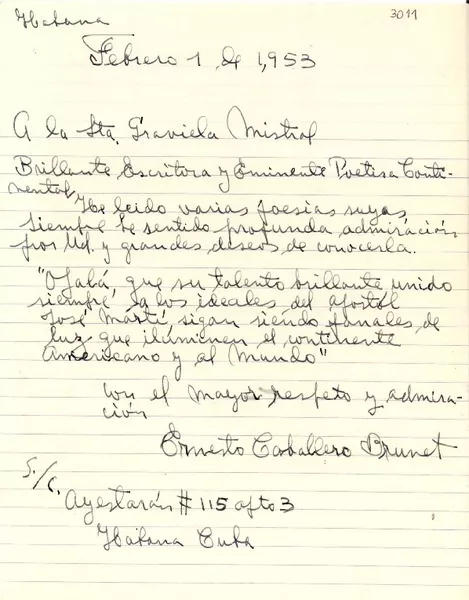 Habana
3011
Febrero 1 de 1,953
A la Sta. Graviela Mistral
Brillante Escritora y Eminente Poetisa Conti-
nental
He leido varias poesias suyas
siempre he sentido profunda admiración
por Ud. y grandes deseos de conocerla.
"Ojalá, que su talento brillante unido
siempre a los ideales del apostol
José Martí sigan siendo fanales de
luz que iluminen el continente
Americano y al Mundo"
con el mayor respeto y admira-
ción
Ernesto Caballero Brunet
S./C.
Ayestarán # 115 apto 3
Habana Cuba